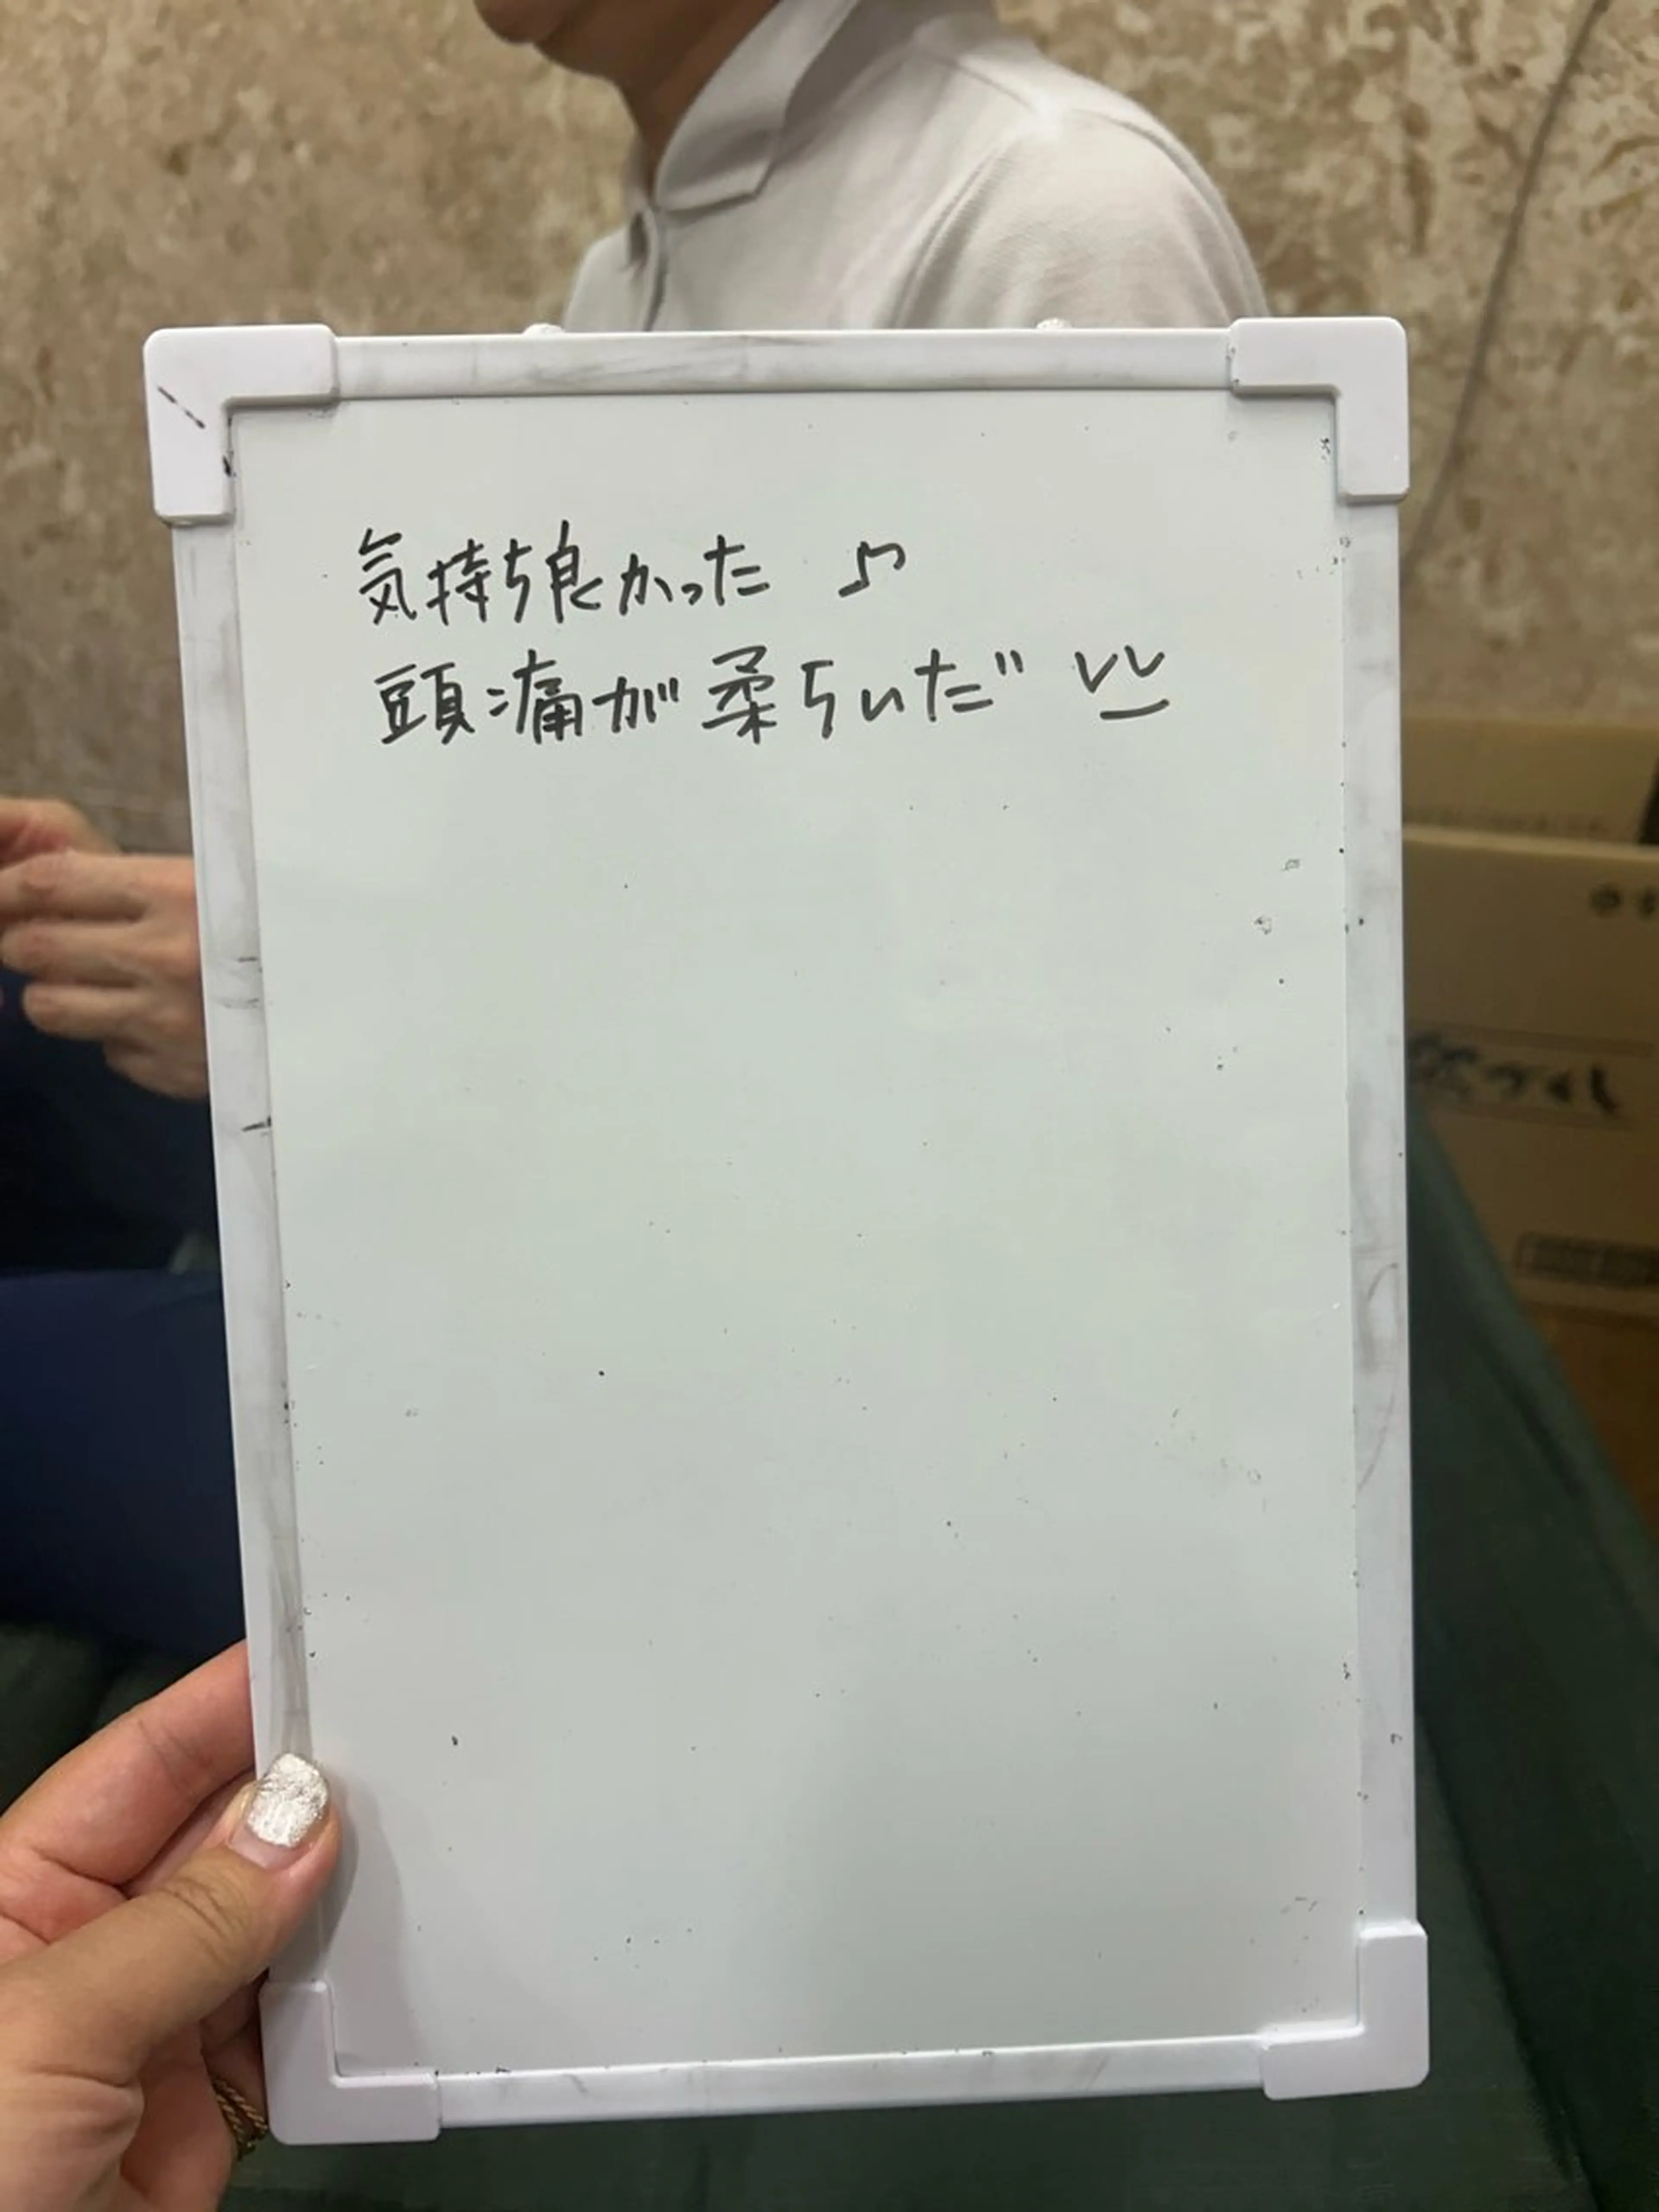 気持ち良かった ♪
頭痛が柔らいだ